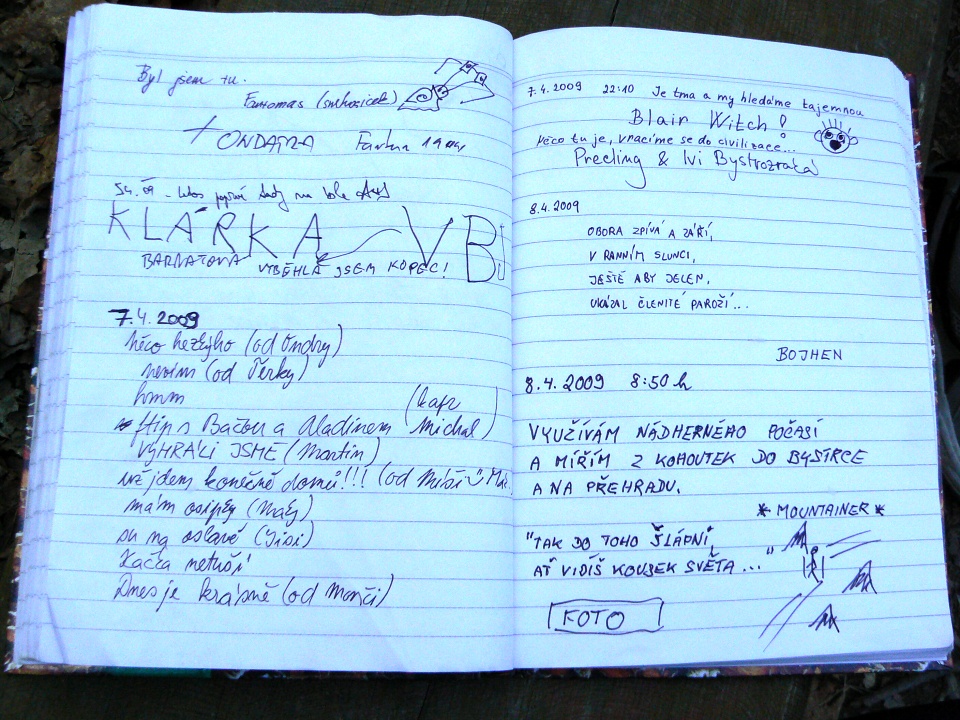 Byl jsem tu.
Fantomas
ONDATRA
KLÁRKA VBIJ
BARNATOVÁ VYBĚHLA JSEM KOPEC!
7.4.2009
něco hezkýho (od Ondry)
nevím (od Terky)
hmm
(kapr
s Bačou a Aladinem Michal)
VYHRÁLI JSME (Martin)
už jdem konečně domů!!! (od Míši
mám osípky
su na oslavě (Jisi)
Kačka netuší
Dnes je krásně (od Monči)
7.4.2009 22:10 Je tma a my hledáme tajemnou
Blair Witch!
Něco tu je, vracíme se do civilizace...
Precling & Ivi Bystrozraká
8.4.2009
OBORA ZPÍVÁ A ZÁŘÍ,
V RANNÍM SLUNCI,
JEŠTĚ ABY JELEN,
UKÁZAL ČLENITÉ PAROŽÍ...
BOJHEN
8.4.2009 8:50 h
VYUŽÍVÁM NÁDHERNÉHO POČASÍ
A MÍŘÍM Z KOHOUTEK DO BYSTRCE
A NA PŘEHRADU.
* MOUNTAINER *
"TAK DO TOHO ŠLÁPNI,
AŤ VIDÍŠ KOUSEK SVĚTA..."
FOTO